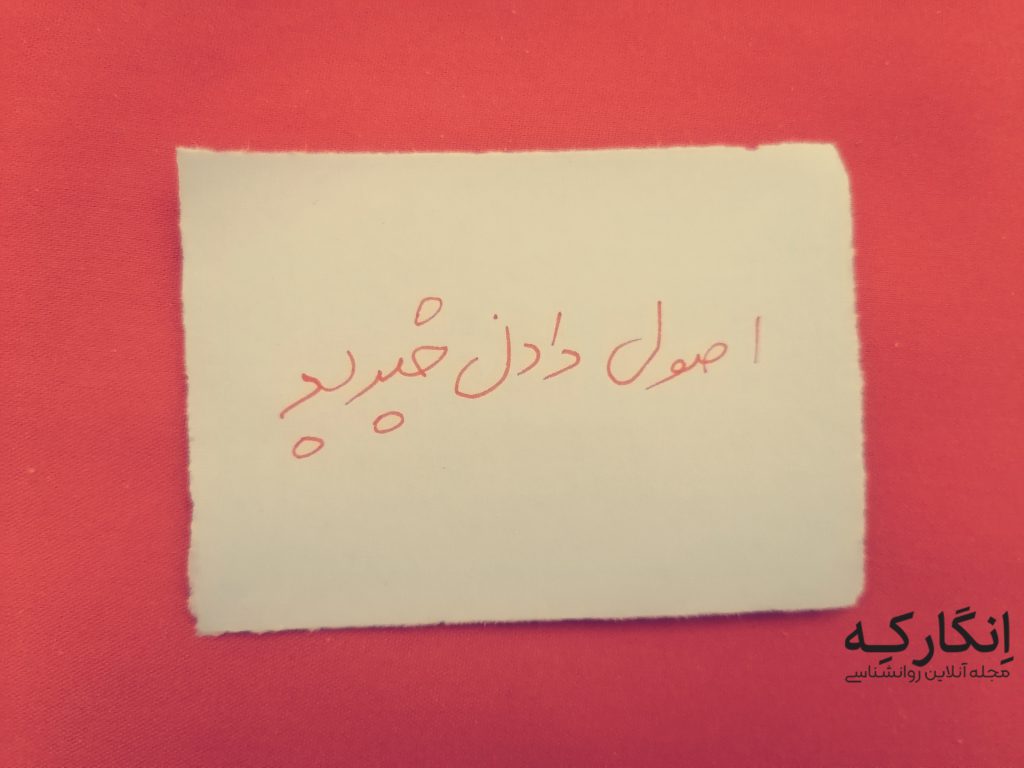 اصول دادن خبر بد
اِنگَارکِه
مجله آنلاین روانشناسی